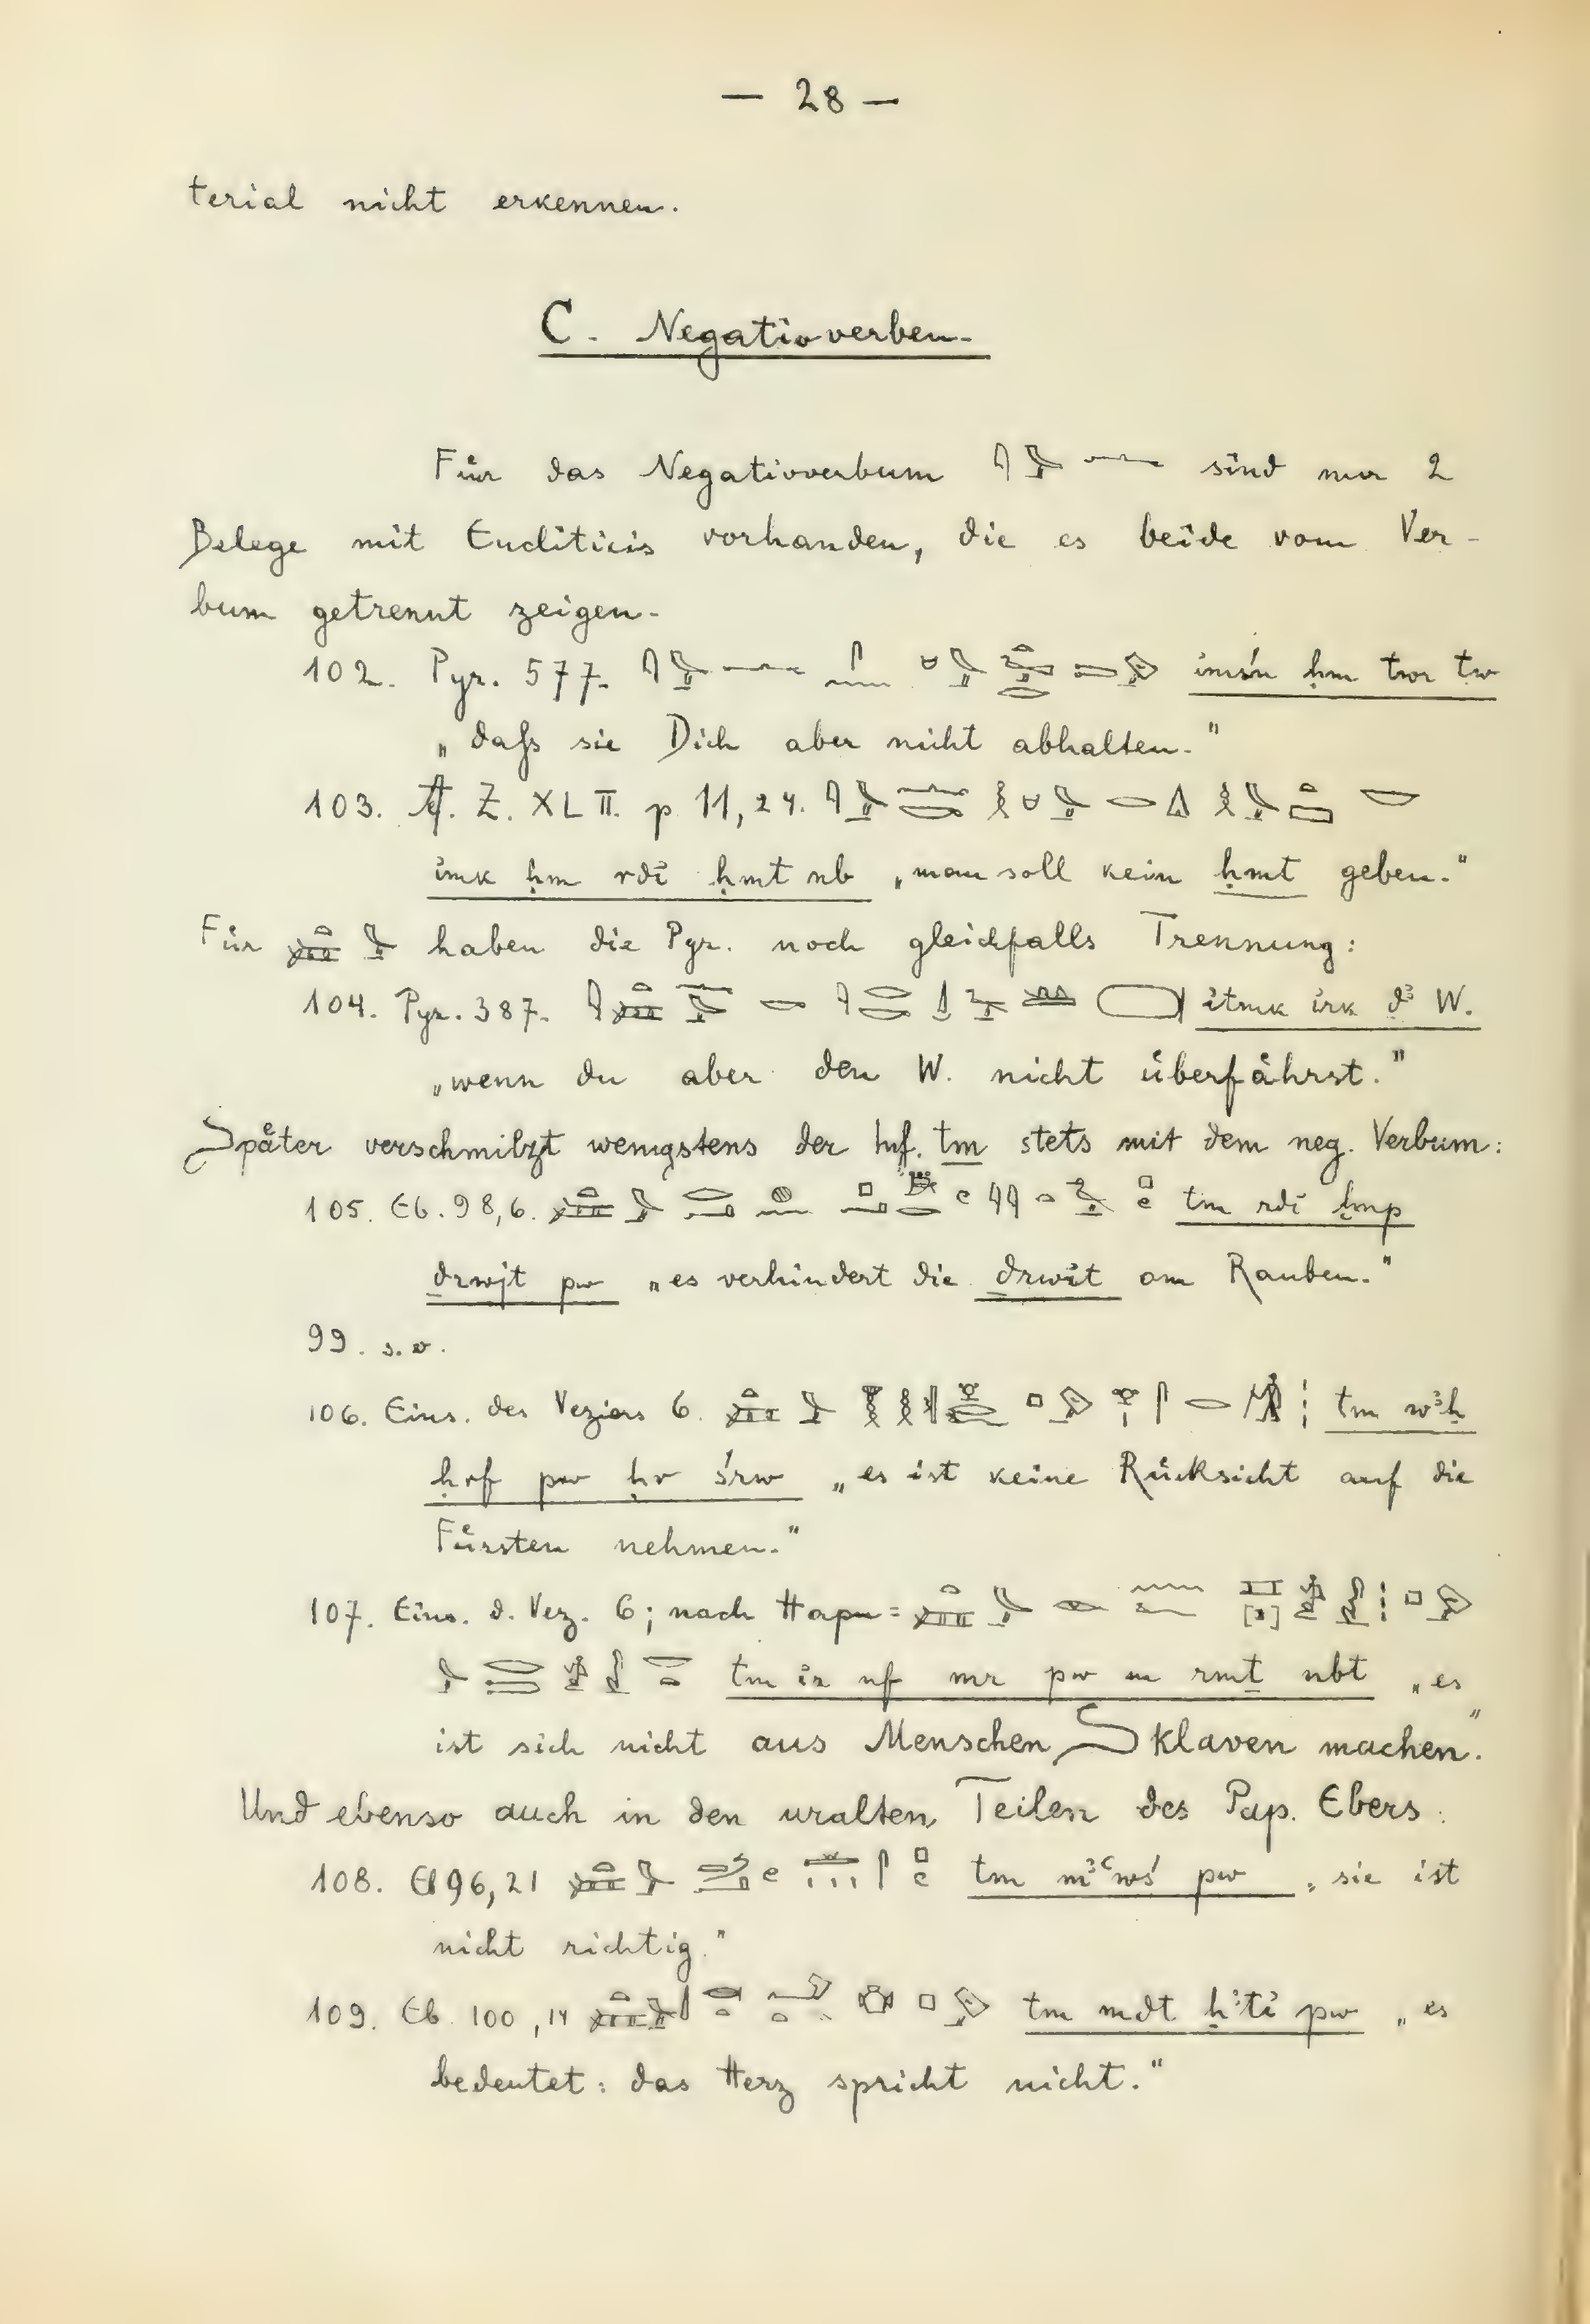 — 28 —
terial nicht erkennen.
C. Negativverben.
Für das Negativverbum 𓇋𓅓𓂜 sind nur 2
Belege mit Encliticis vorhanden, die es beide vom Ver-
bum getrennt zeigen.
102. Pyr. 577. imśn ḥm twr ṯw
„daſs sie Dich aber nicht abhalten."
103. Ä. Z. XLII. p 11,24.
imk ḥm rdi ḥmt nb „man soll kein ḥmt geben."
Für 𓏏𓍃𓅓 haben die Pyr. noch gleichfalls Trennung:
104. Pyr. 387. itmk irk ḏꜣ W.
„wenn du aber den W. nicht überfährst."
Später verschmilzt wenigstens der Inf. tm stets mit dem neg. Verbum:
105. Eb. 98,6. tm rdi ḫnp
ḏrwjt pw „es verhindert die ḏrwit am Rauben."
99. s. o.
106. Eins. des Veziers 6. tm wꜣḥ
ḥrf pw ḥr śrw „es ist keine Rücksicht auf die
Fürsten nehmen."
107. Eins. d. Vez. 6; nach Hapu= tm ir nf mr pw m rmṯ nbt „es
ist sich nicht aus Menschen Sklaven machen."
Und ebenso auch in den uralten Teilen des Pap. Ebers:
108. Eb 96,21 tm mꜣꜥwś pw „sie ist
nicht richtig."
109. Eb. 100,14 tm mdt ḥꜣti pw „es
bedeutet: das Herz spricht nicht."